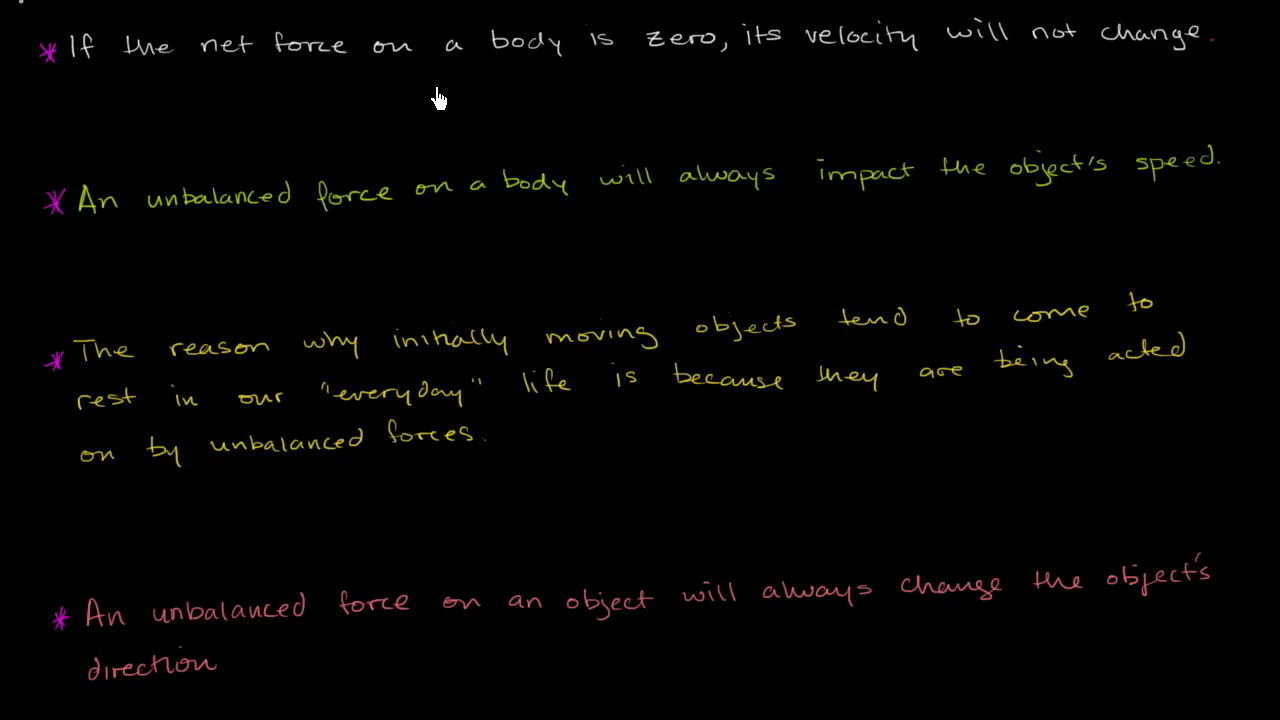 * If the net force on a body is zero, its velocity will not change.
* An unbalanced force on a body will always impact the object's speed.
* The reason why initially moving objects tend to come to
rest in our "everyday" life is because they are being acted
on by unbalanced forces.
* An unbalanced force on an object will always change the object's
direction